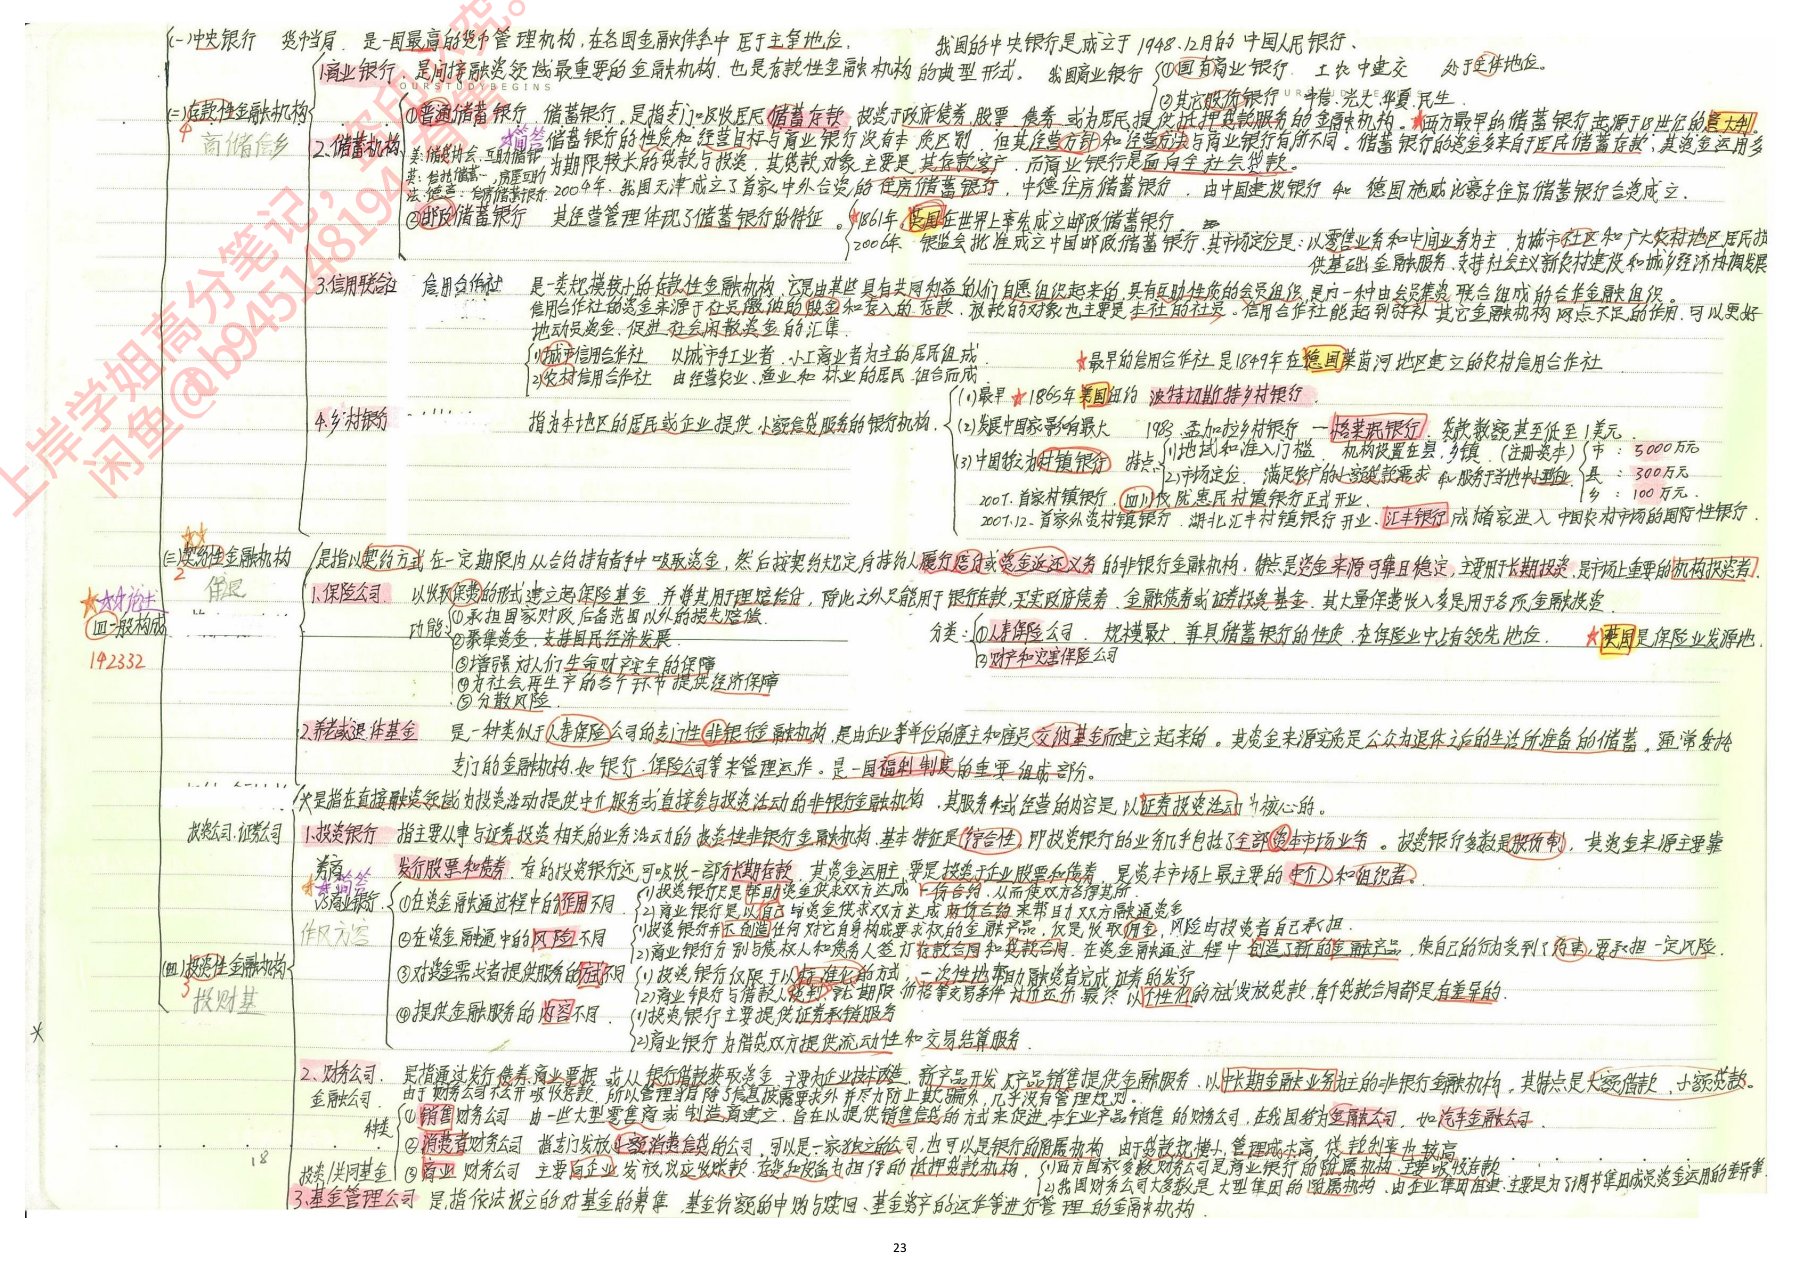 (一)中央银行 货币当局. 是一国最高的货币管理机构,在各国金融体系中居于主导地位. 我国的中央银行是成立于1948.12月的中国人民银行.
1.商业银行 是间接融资领域最重要的金融机构.也是存款性金融机构的典型形式。 我国商业银行 ①国有商业银行. 工农中建交 处于主体地位。
OURSTUDYBEGINS
②其它股份银行 中信.光大.华夏.民生.
(二)存款性金融机构
4
商储信乡
①普通储蓄银行 储蓄银行.是指专门吸收居民储蓄存款 投资于政府债券.股票.债券.或为居民提供抵押贷款服务的金融机构。★西方最早的储蓄银行起源于18世纪的意大利.
2.储蓄机构
★简答 储蓄银行的性质和经营目标与商业银行没有本质区别.但其经营方针和经营方法与商业银行有所不同。储蓄银行的资金多来自于居民储蓄存款,其资金运用多
美:储贷协会.互助储蓄银
为期限较长的贷款与投资.其贷款对象主要是其存款客户.而商业银行是面向全社会贷款。
2004年.我国天津成立了首家中外合资的住房储蓄银行.中德住房储蓄银行.由中国建设银行和德国施威比豪尔住房储蓄银行合资成立.
②邮政储蓄银行 其经营管理体现了储蓄银行的特征。★1861年.英国在世界上率先成立邮政储蓄银行
2006年 银监会批准成立中国邮政储蓄银行.其市场定位是:以零售业务和中间业务为主.为城市社区和广大农村地区居民提
供基础金融服务.支持社会主义新农村建设和城乡经济协调发展
3.信用联合社 信用合作社 是一类规模较小的存款性金融机构.它是由某些具有共同利益的人们自愿组织起来的.具有互助性质的会员组织.是由一种由会员集资联合组成的合作金融组织。
信用合作社的资金来源于社员缴纳的股金和存入的存款.放款的对象也主要是本社的社员。信用合作社能起到弥补其它金融机构网点不足的作用.可以更好
地动员资金.促进社会闲散资金的汇集.
1)城市信用合作社 以城市手工业者.小工商业者为主的居民组成.
★最早的信用合作社是1849年在德国莱茵河地区建立的农村信用合作社
2)农村信用合作社 由经营农业、渔业和林业的居民组合而成.
4.乡村银行 指为本地区的居民或企业提供小额信贷服务的银行机构.
(1)最早 ★1865年美国纽约 波特切斯特乡村银行.
(2)发展中国家影响最大 1983 孟加拉乡村银行 — 格莱珉银行.贷款数额甚至低至1美元.
(3)中国称为村镇银行 特点 1)地域和准入门槛. 机构设置在县.乡镇.(注册资本) 市:5000万元
2)市场定位 满足农户的小额贷款需求 和服务于当地中小型企业. 县:300万元
乡:100万元.
2007.首家村镇银行.四川仪陇惠民村镇银行正式开业.
2007.12.首家外资村镇银行.湖北汇丰村镇银行开业.汇丰银行成为首家进入中国农村市场的国际性银行.
★★
(三)契约性金融机构
2
保退
是指以契约方式在一定期限内从合约持有者手中吸取资金,然后按契约规定向持约人履行赔付或资金返还义务的非银行金融机构.特点是资金来源可靠且稳定,主要用于长期投资.是市场上重要的机构投资者.
1.保险公司. 以收取保费的形式建立起保险基金.并将其用于理赔给付,除此之外只能用于银行存款,买卖政府债券.金融债券或证券投资基金.其大量保费收入多是用于各项金融投资.
四.一般构成
142332
功能 ①承担国家财政后备范围以外的损失赔偿.
②聚集资金,支持国民经济发展.
③增强对人们生命财产安全的保障
④为社会再生产的各个环节提供经济保障
⑤分散风险.
分类: ①人寿保险公司. 规模最大.兼具储蓄银行的性质.在保险业中占有领先地位. ★英国是保险业发源地.
②财产和灾害保险公司
2.养老或退休基金 是一种类似于人寿保险公司的专门性非银行金融机构,是由企业等单位的雇主和雇员交纳基金而建立起来的。其资金来源实质是公众为退休之后的生活所准备的储蓄,通常委托
专门的金融机构.如银行.保险公司等来管理运作。是一国福利制度的重要组成部分。
(四)投资性金融机构
3
投财基
是指在直接融资领域为投资活动提供中介服务或直接参与投资活动的非银行金融机构.其服务或经营的内容是以证券投资活动为核心的。
投资公司.证券公司
1.投资银行 指主要从事与证券投资相关的业务活动的投资性非银行金融机构.基本特征是综合性,即投资银行的业务几乎包括了全部资本市场业务。投资银行多数是股份制,其资金来源主要靠
券商 发行股票和债券.有的投资银行还可吸收一部分长期存款.其资金运用主要是投资于企业股票和债券.是资本市场上最主要的中介人和组织者。
★★简答
VS商业银行.
作风方容
①在资金融通过程中的作用不同 1)投资银行只是帮助资金供求双方达成一份合约.从而使双方各得其所.
2)商业银行是以自己与资金供求双方达成两份合约来帮助双方融通资金
②在资金融通中的风险不同 1)投资银行并不创造任何对它自身构成要求权的金融产品,仅是收取佣金,风险由投资者自己承担.
2)商业银行分别与债权人和债务人签订存款合同和贷款合同.在资金融通过程中创造了新的金融产品,使自己的行为受到了约束,要承担一定风险.
③对资金需求者提供服务的方式不同 1)投资银行仅限于以标准化的方式.一次性地帮助融资者完成证券的发行
2)商业银行与借款人谈判.就期限.价格等交易条件讨价还价.最终以个性化的方式发放贷款,每个贷款合同都是有差异的.
④提供金融服务的内容不同. 1)投资银行主要提供证券承销服务
2)商业银行为借贷双方提供流动性和交易结算服务.
*
2、财务公司. 是指通过发行债券.商业票据 或从银行借款获取资金.主要为企业技术改造、新产品开发及产品销售提供金融服务.以中长期金融业务为主的非银行金融机构,其特点是大额借款,小额贷款。
金融公司. 由于财务公司不公开吸收存款,所以管理当局除了信息披露要求外并尽力防止欺骗外,几乎没有管理规则.
种类 ①销售财务公司 由一些大型零售商或制造商建立.旨在以提供销售信贷的方式来促进本企业产品销售的财务公司,在我国称为金融公司.如汽车金融公司.
②消费者财务公司 指专门发放小额消费信贷的公司.可以是一家独立的公司,也可以是银行的附属机构.由于贷款规模小.管理成本高.贷款利率也较高
投资/共同基金 ③商业财务公司 主要向企业发放以应收账款.存货和设备为担保的抵押贷款机构. 1)西方国家多数财务公司是商业银行的附属机构.主要吸收存款
2)我国财务公司大多数是大型集团的附属机构.由企业集团组建.主要是为了调节集团成员资金运用的差异等.
18
3.基金管理公司 是指依法设立的对基金的募集.基金份额的申购与赎回、基金资产的运作等进行管理的金融机构.
上岸学姐高分笔记,
闲鱼@b94514819
23